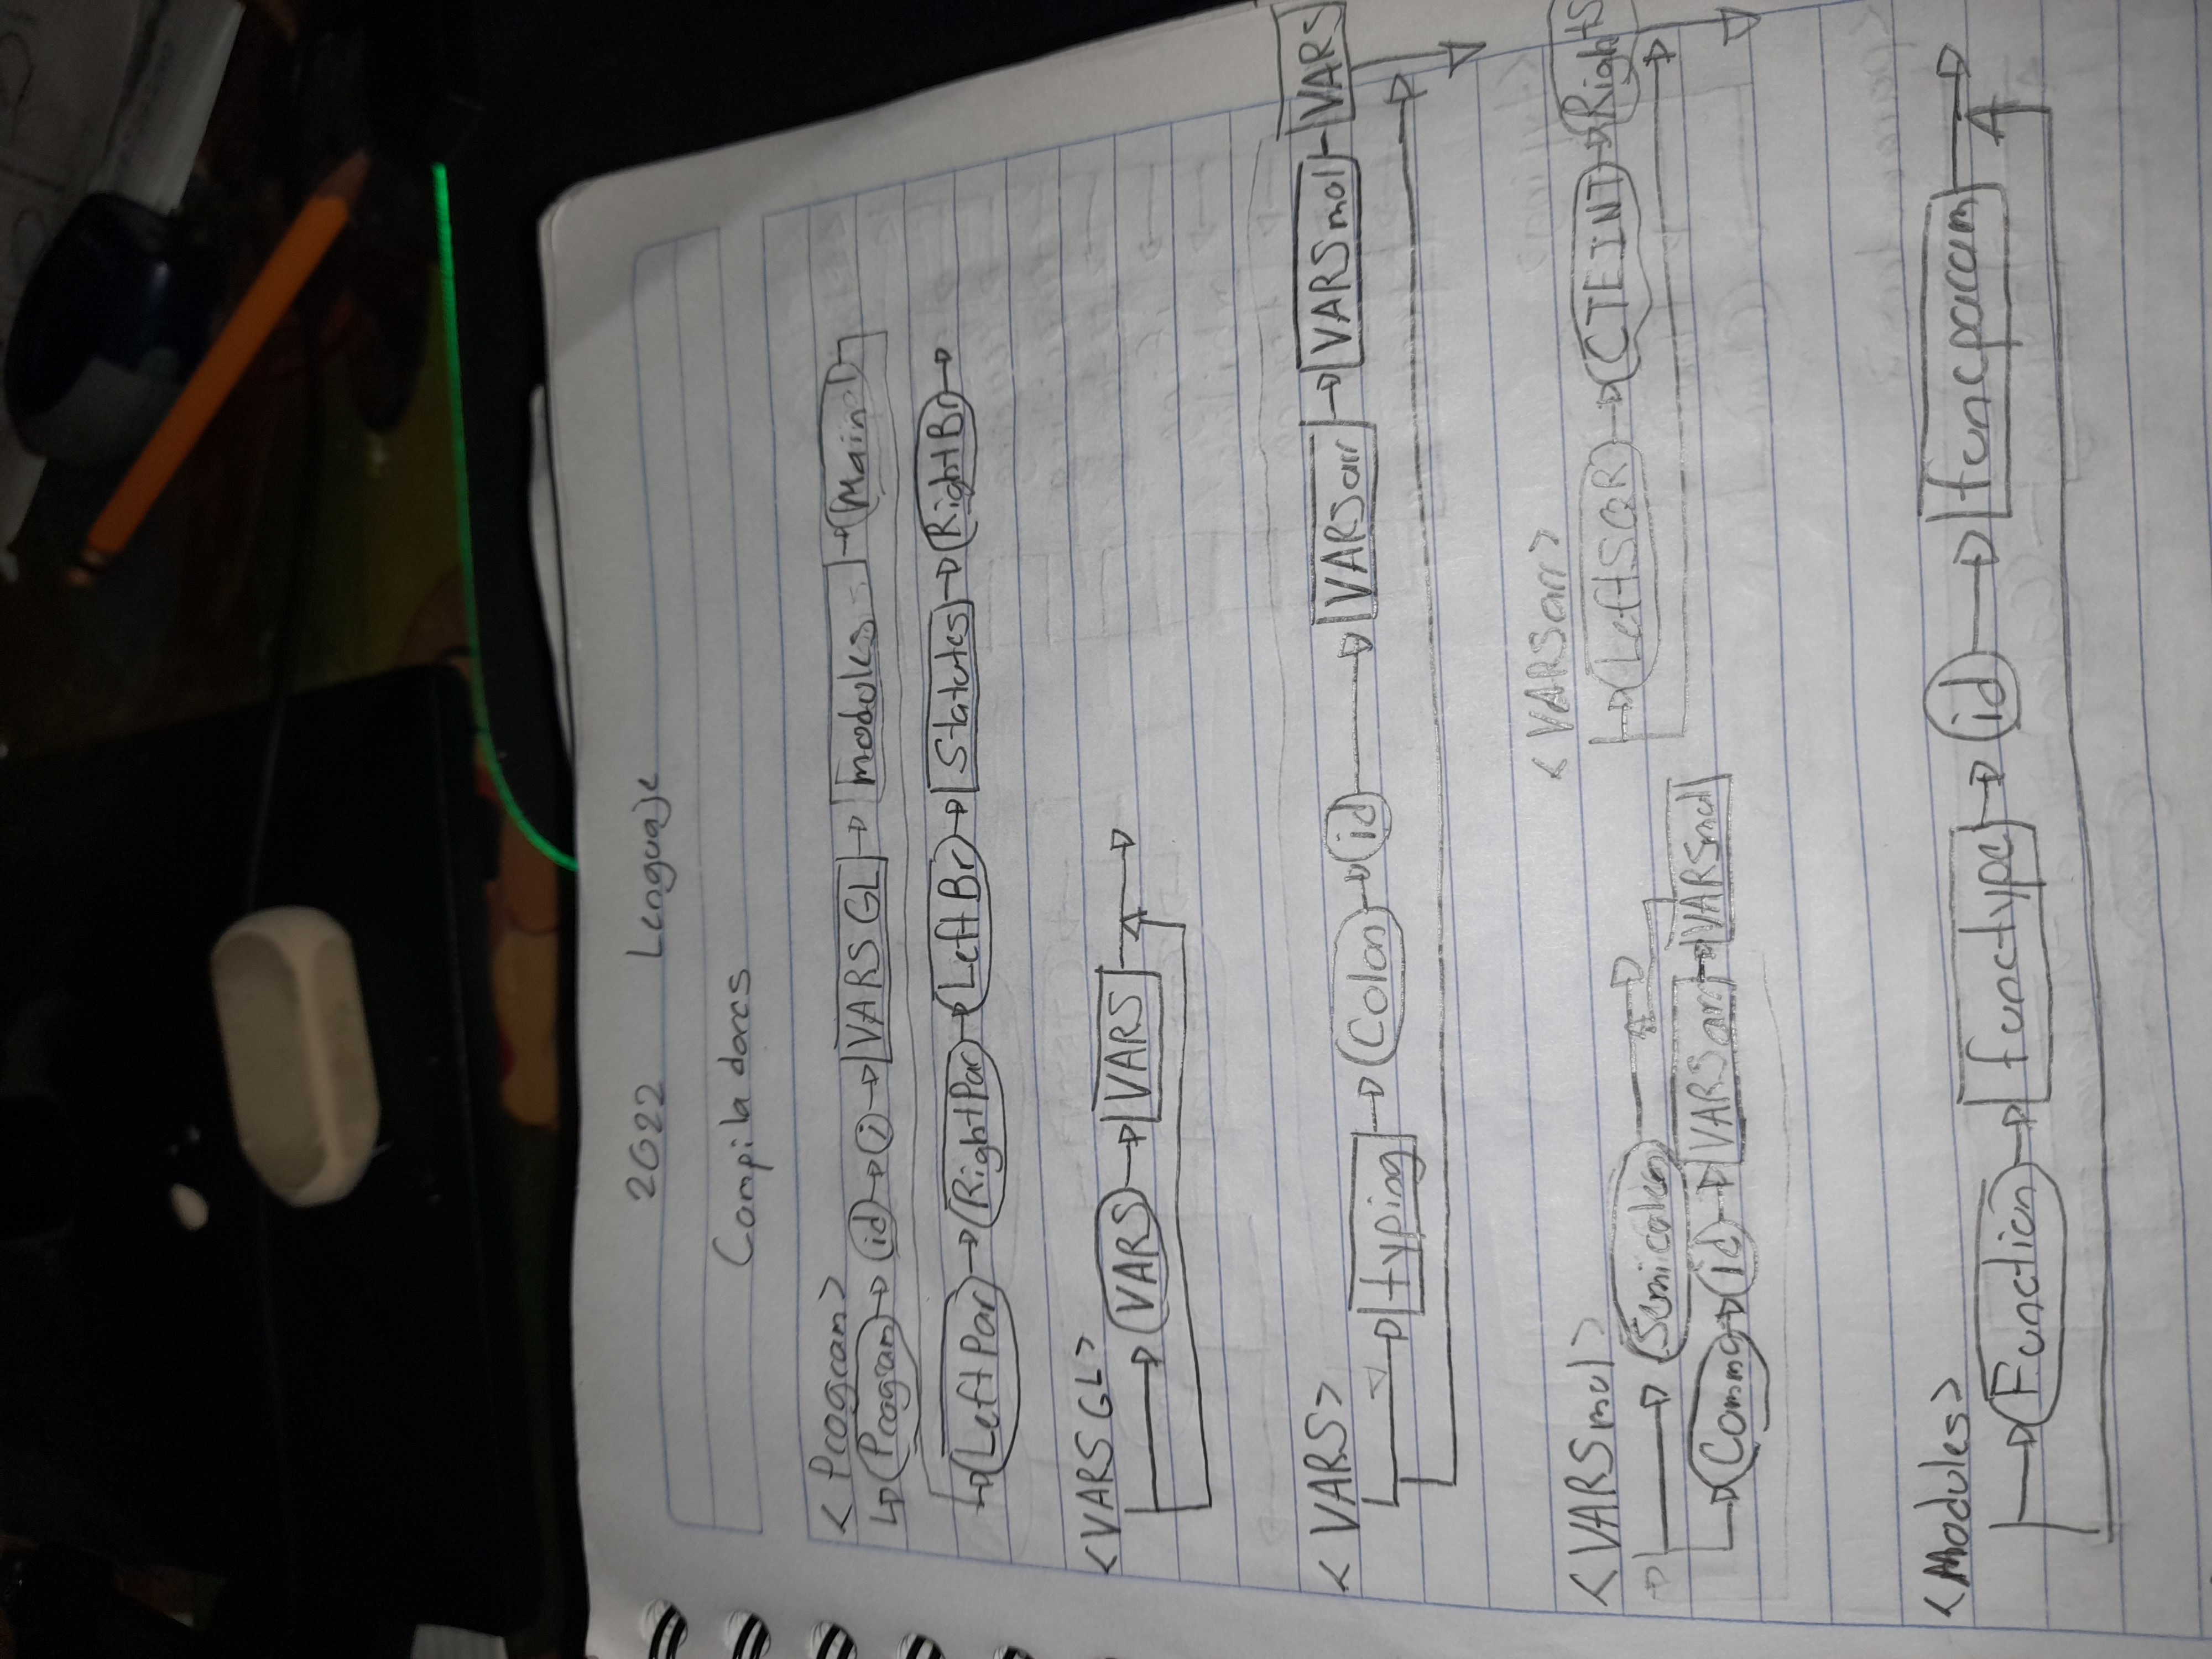 2022 Lenguaje
Compiladores
<Program>
Program id ; VARS GL modules Main
LeftPar RightPar LeftBr Statutes RightBr
<VARS GL>
VARS VARS
<VARS>
typing Colon id VARSarr VARSmul VARS
<VARSmul>
Semicolon
Comma id VARSarr VARSmul
<VARSarr>
LeftSQR CTEINT RightS
<Modules>
Function functype id funcparam